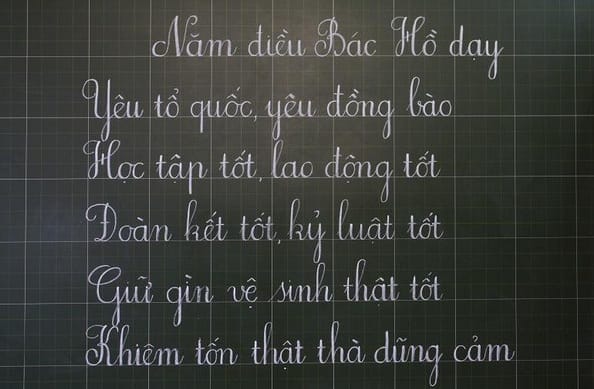 Năm điều Bác Hồ dạy
Yêu tổ quốc, yêu đồng bào
Học tập tốt, lao động tốt
Đoàn kết tốt, kỷ luật tốt
Giữ gìn vệ sinh thật tốt
Khiêm tốn thật thà dũng cảm